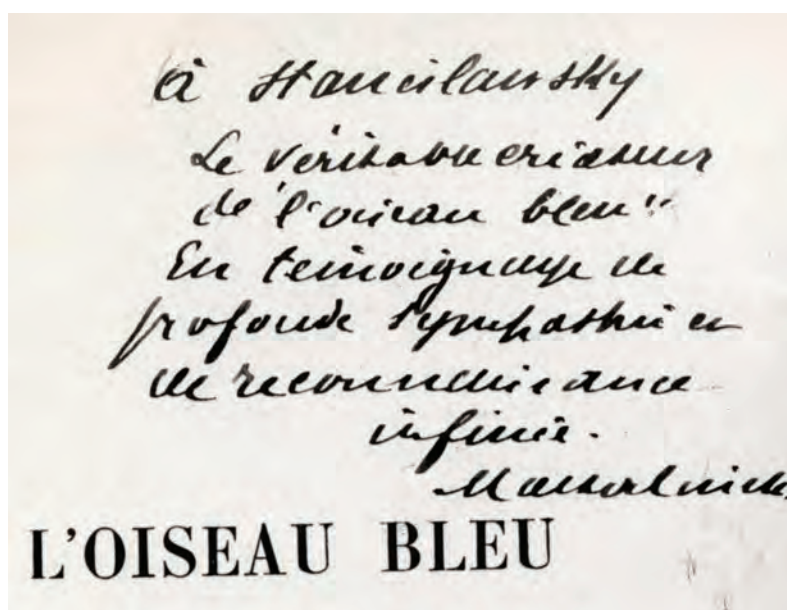 à Stancilawsky
Le véritable créateur
de "l'oiseau bleu"
En témoignage de
profonde sympathie et
de reconnaissance
infinie.
Maeterlinck
L'OISEAU BLEU